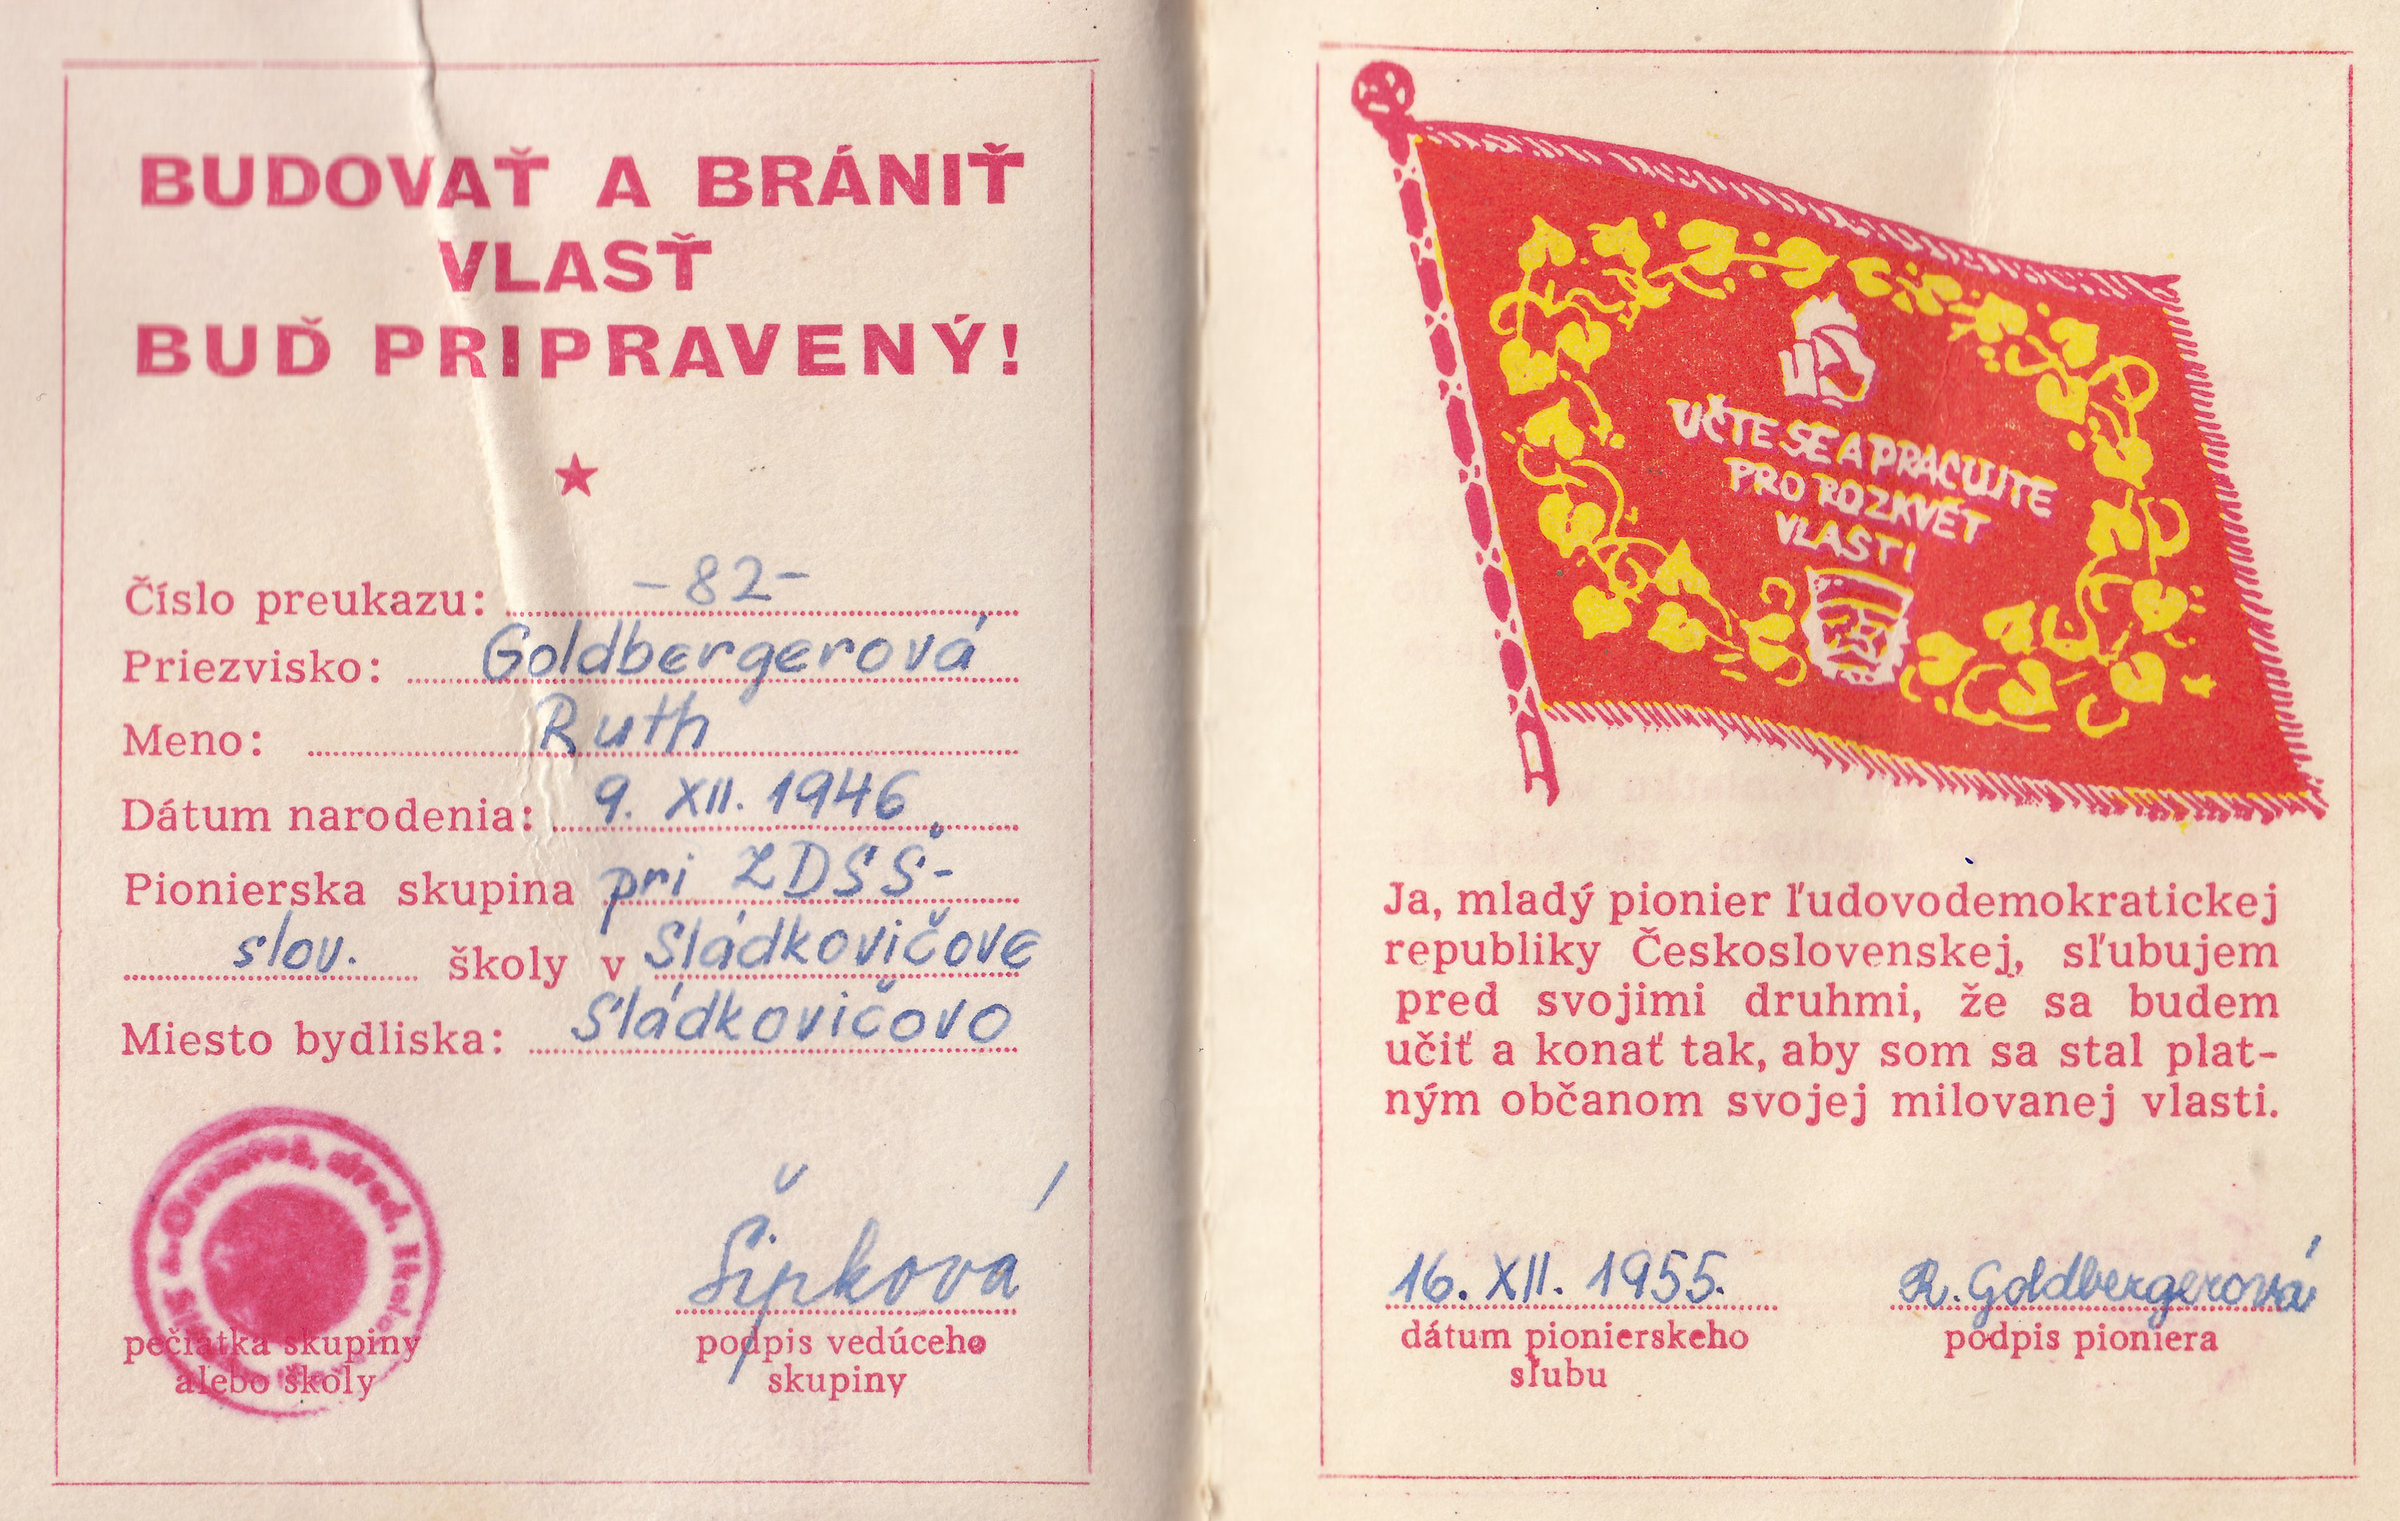 BUDOVAŤ A BRÁNIŤ
VLASŤ
BUĎ PRIPRAVENÝ!
Číslo preukazu: -82-
Priezvisko: Goldbergerová
Meno: Ruth
Dátum narodenia: 9. XII. 1946
Pionierska skupina pri ZDSŠ-
slov. školy v Sládkovičove
Miesto bydliska: Sládkovičovo
Šípková
pečiatka skupiny
alebo školy
podpis vedúceho
skupiny
UČTE SE A PRACUJTE
PRO ROZKVĚT
VLASTI
Ja, mladý pionier ľudovodemokratickej
republiky Československej, sľubujem
pred svojimi druhmi, že sa budem
učiť a konať tak, aby som sa stal plat-
ným občanom svojej milovanej vlasti.
16. XII. 1955. R. Goldbergerová
dátum pionierskeho
sľubu
podpis pioniera